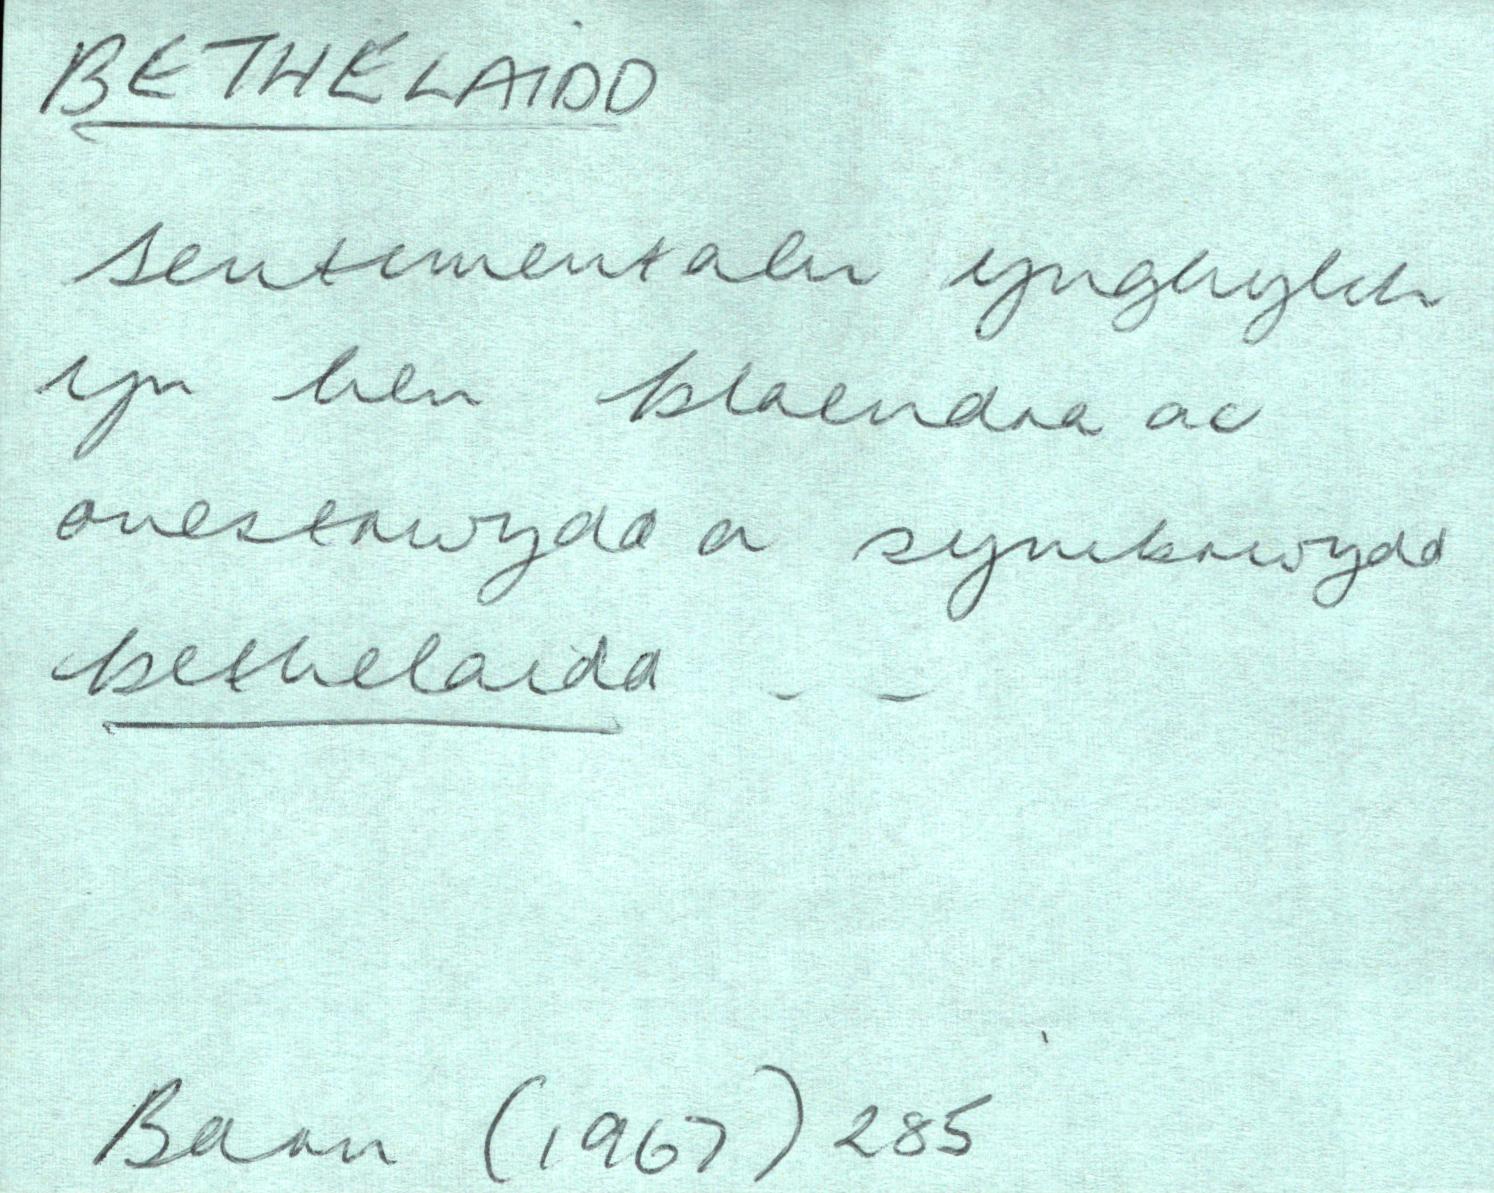 BETHELAIDD
sentimentalu ynghylch
yn hen blaendra ac
onestrwydd a symbrwydd
bethelaidd - -
Barn (1967) 285